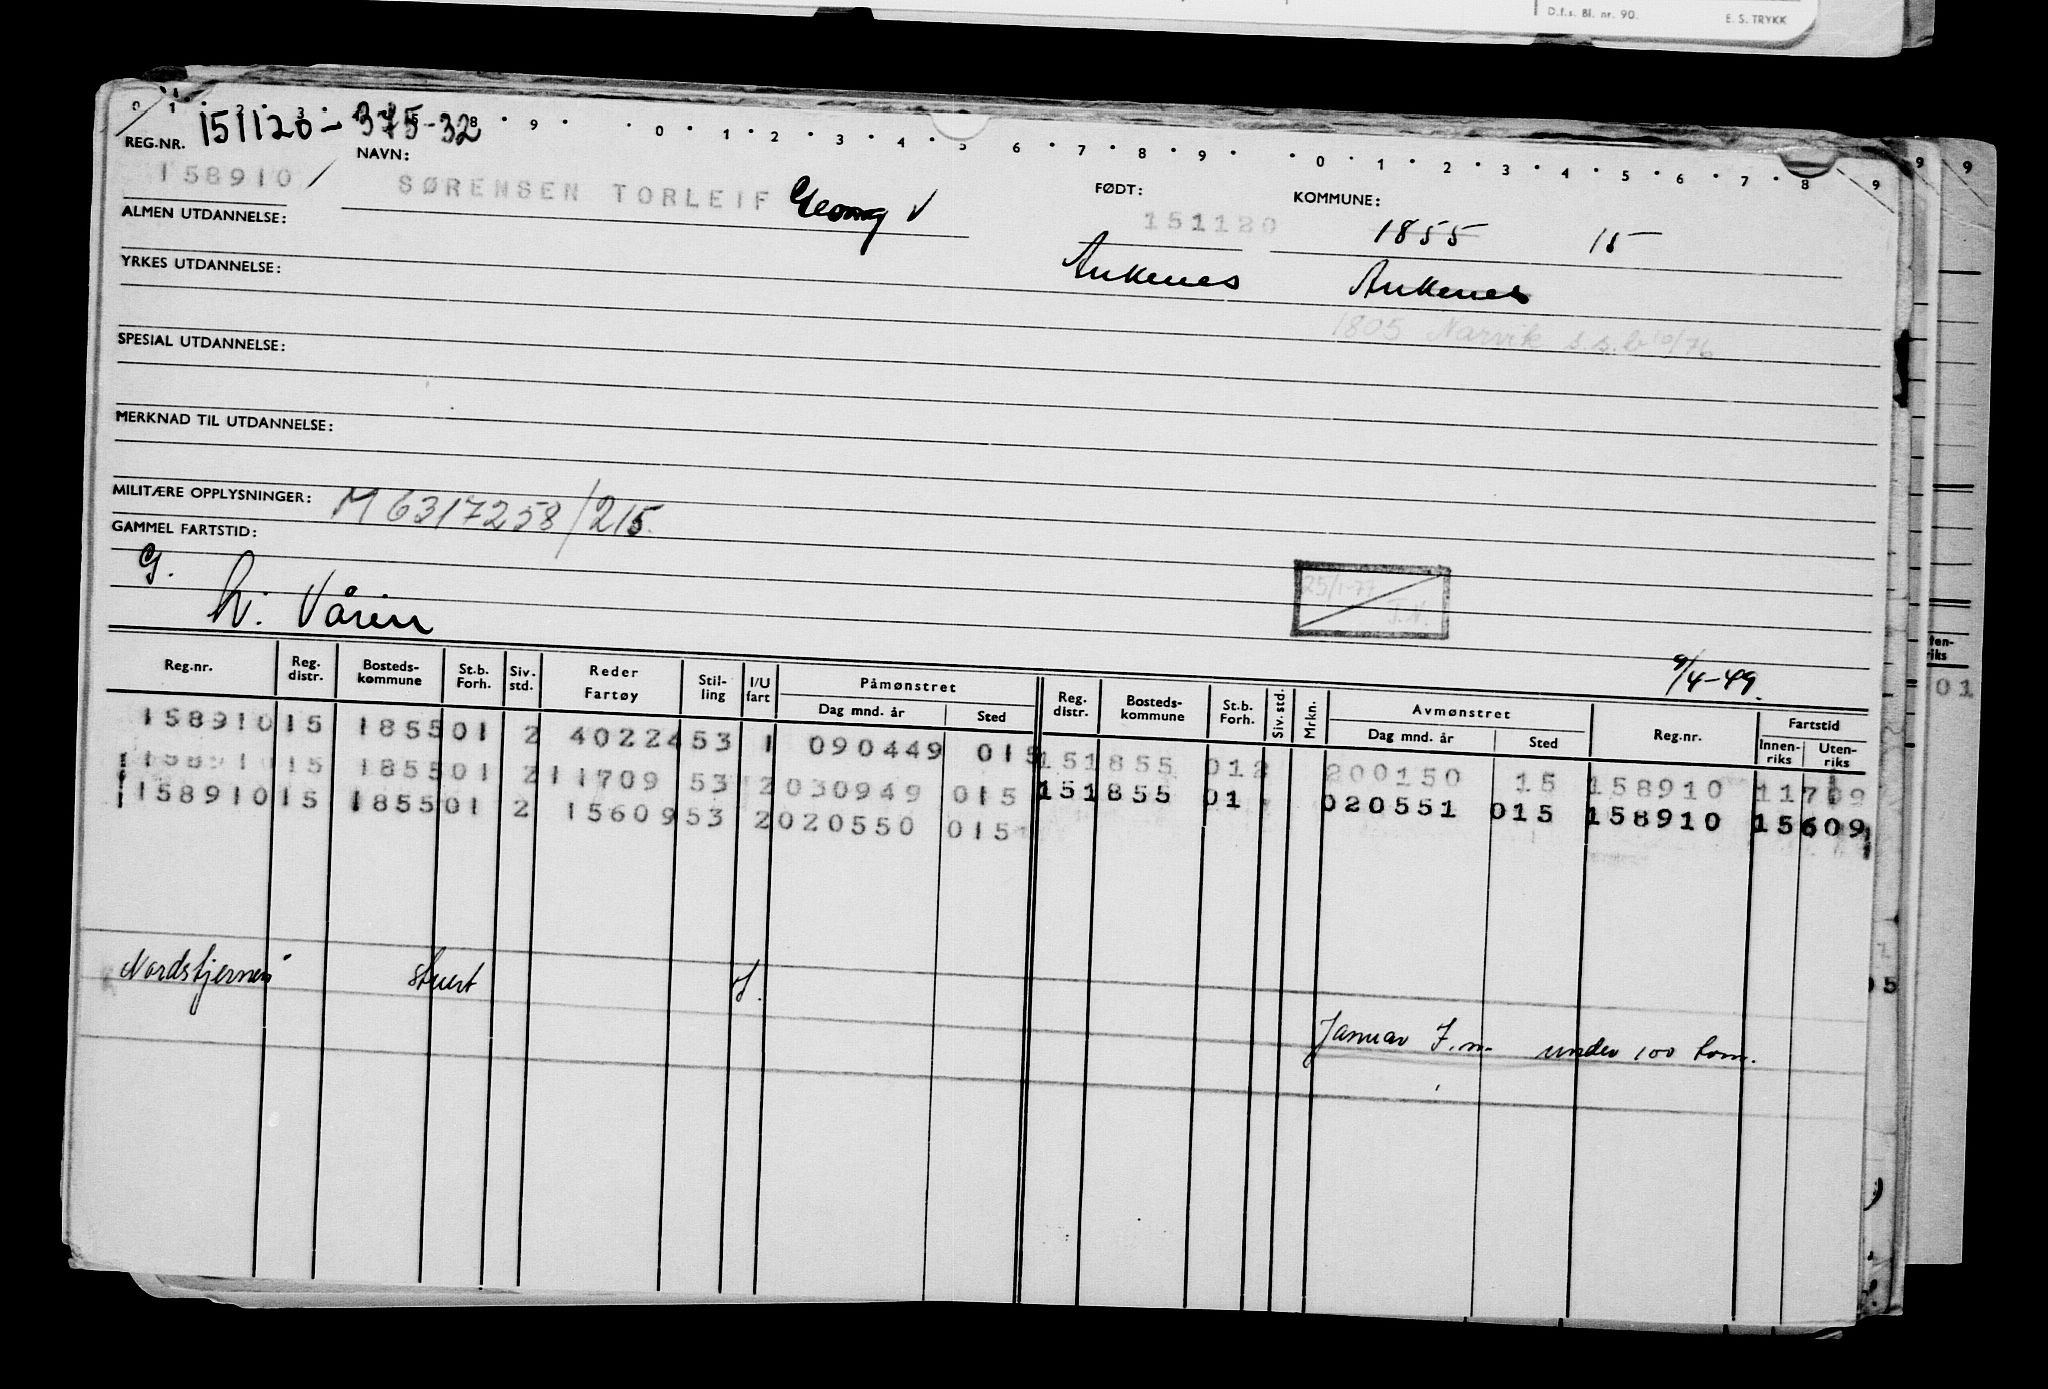 D.f.s. Bl. nr. 90. E. S. TRYKK
0 1 2 3 4 5 8 9 0 1 2 3 4 5 6 7 8 9 0 1 2 3 4 5 6 7 8 9
REG.NR. 151120 - 375-32
158910 /
NAVN: SØRENSEN TORLEIF Georg V
FØDT: 151120
KOMMUNE: 1855 15
Ankenes Ankenes
1805 Narvik s.s.b 10/76
ALMEN UTDANNELSE:
YRKES UTDANNELSE:
SPESIAL UTDANNELSE:
MERKNAD TIL UTDANNELSE:
MILITÆRE OPPLYSNINGER: M 6317258/215.
GAMMEL FARTSTID:
G.
h: Vårin
25/1-77 J.N.
9/4-49.
Reg.nr. Reg. distr. Bosteds-kommune St.b. Forh. Siv. std. Reder Fartøy Stil-ling I/U fart Påmønstret Dag mnd. år Sted Reg. distr. Bosteds-kommune St.b. Forh. Siv. std. Mrkn. Avmønstret Dag mnd. år Sted Reg.nr. Fartstid Innen-riks Uten-riks
158910 15 1855 01 2 40224 53 1 090449 015
158910 15 1855 01 2 11709 53 2 030949 015 15 1855 01 2 200150 15 158910 11709
158910 15 1855 01 2 15609 53 2 020550 015 15 1855 01 020551 015 158910 15609
Nordstjernen" stuert J.
Januar J.m. under 100 tonn.
ten-
riks
01
05